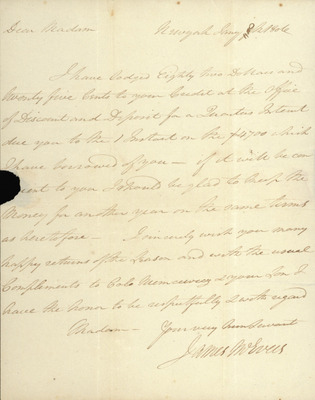 Dear Madam Newyork Jany 8th 1806
I have lodged Eighty two Dollars and
twenty five Cents to your Credit at the Office
of Discount and Deposit for a Quarters Interest
due you to the 1 Instant on the $4700 which
I have borrowed of you — if it will be con
ient to you I should be glad to keep the
Money for another year on the same terms
as heretofore — I sincerely wish you many
happy returns of the Season and with the usual
Complements to Colo & your Son I
have the honor to be respectfully & with regard
Madam — Your very hum Servant
James McEvers